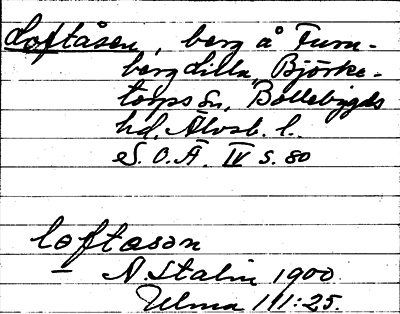 Loftåsen, berg å Furu-
bergdilla, Björke-
torps sn, Bollebygds
hd. Älvsb. l.
S. O. Ä. IV s. 80
loftasən
N Stalin 1900.
Ulma 111:25.